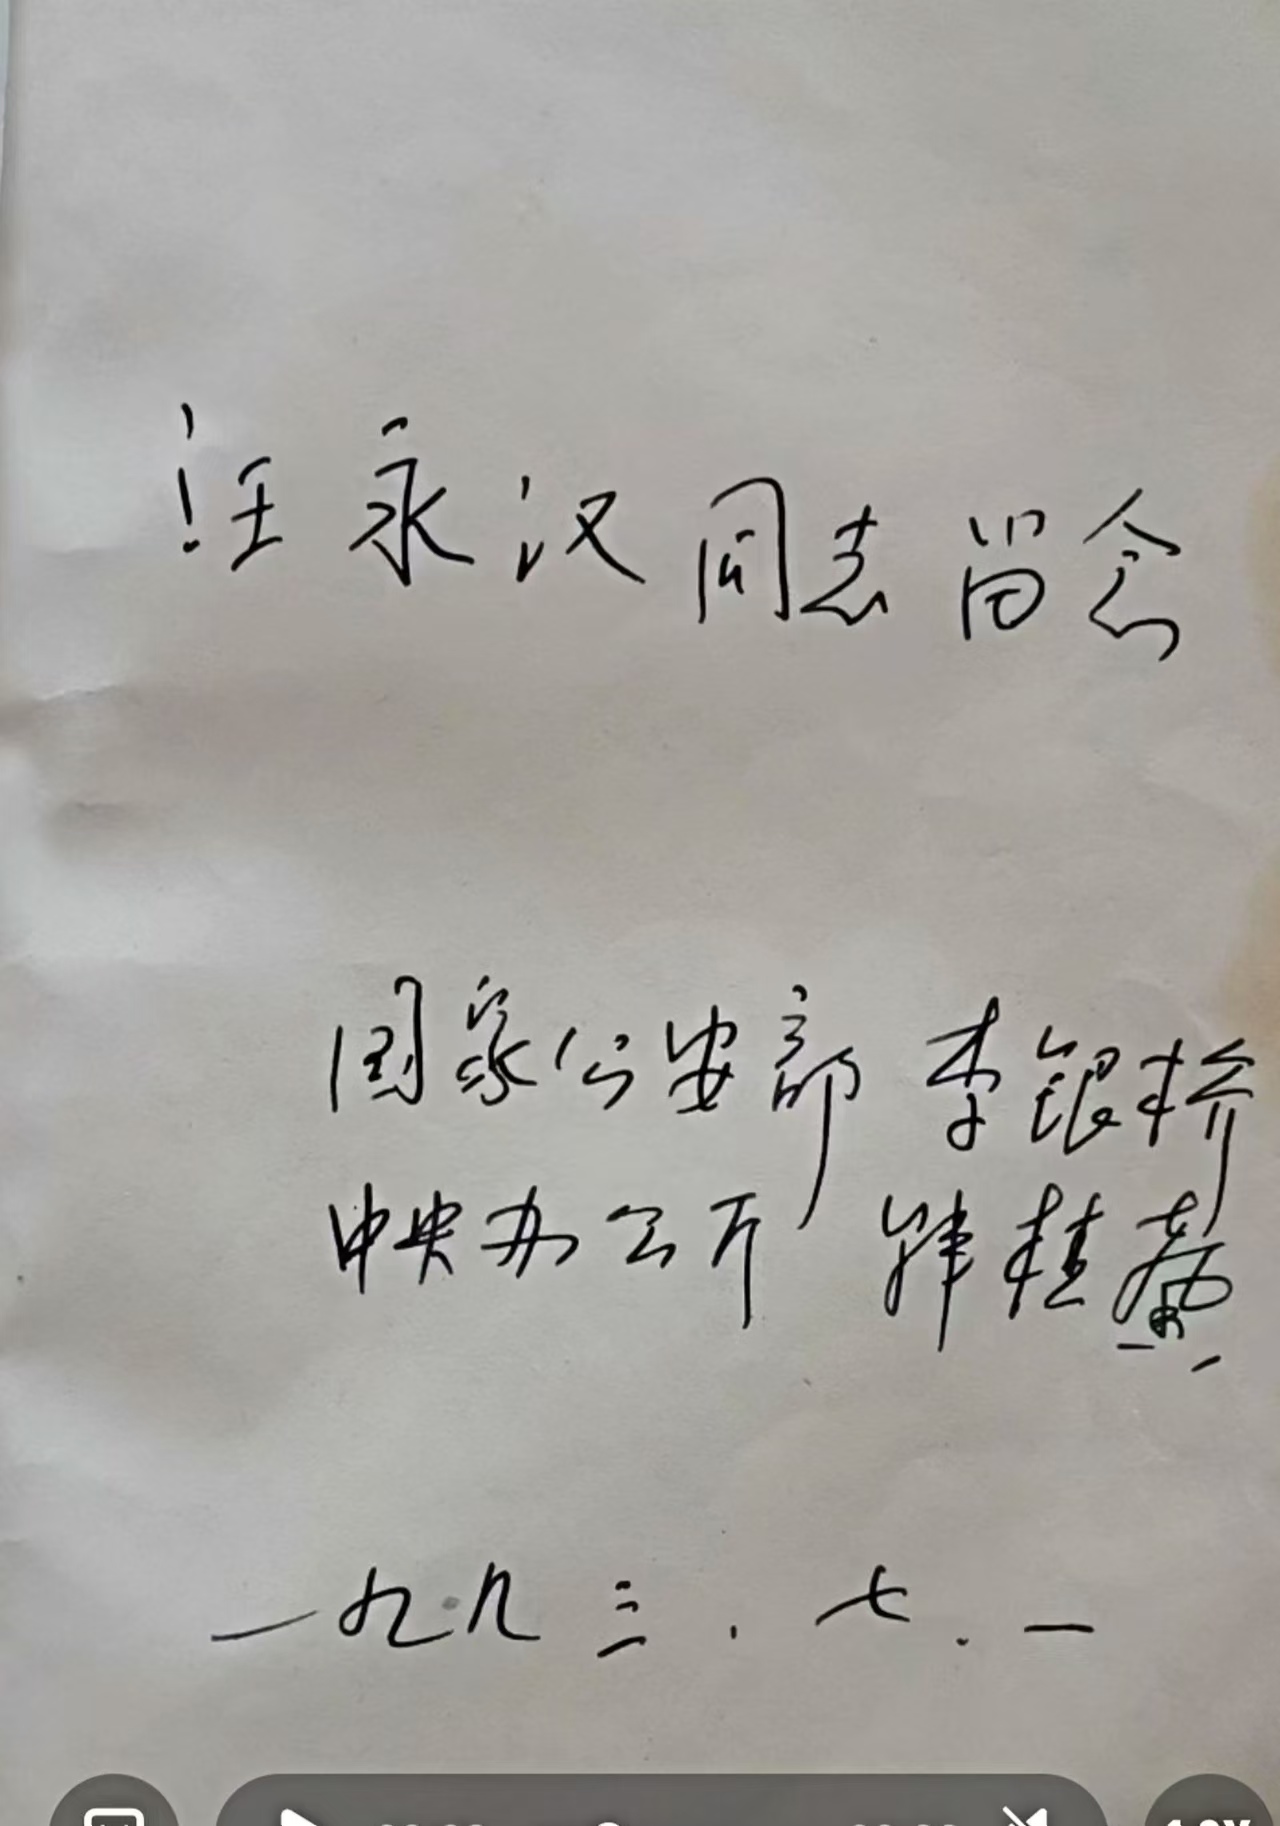 汪永汉同志留念
国家公安部 李银桥
中央办公厅 韩桂馨
一九九三.七.一